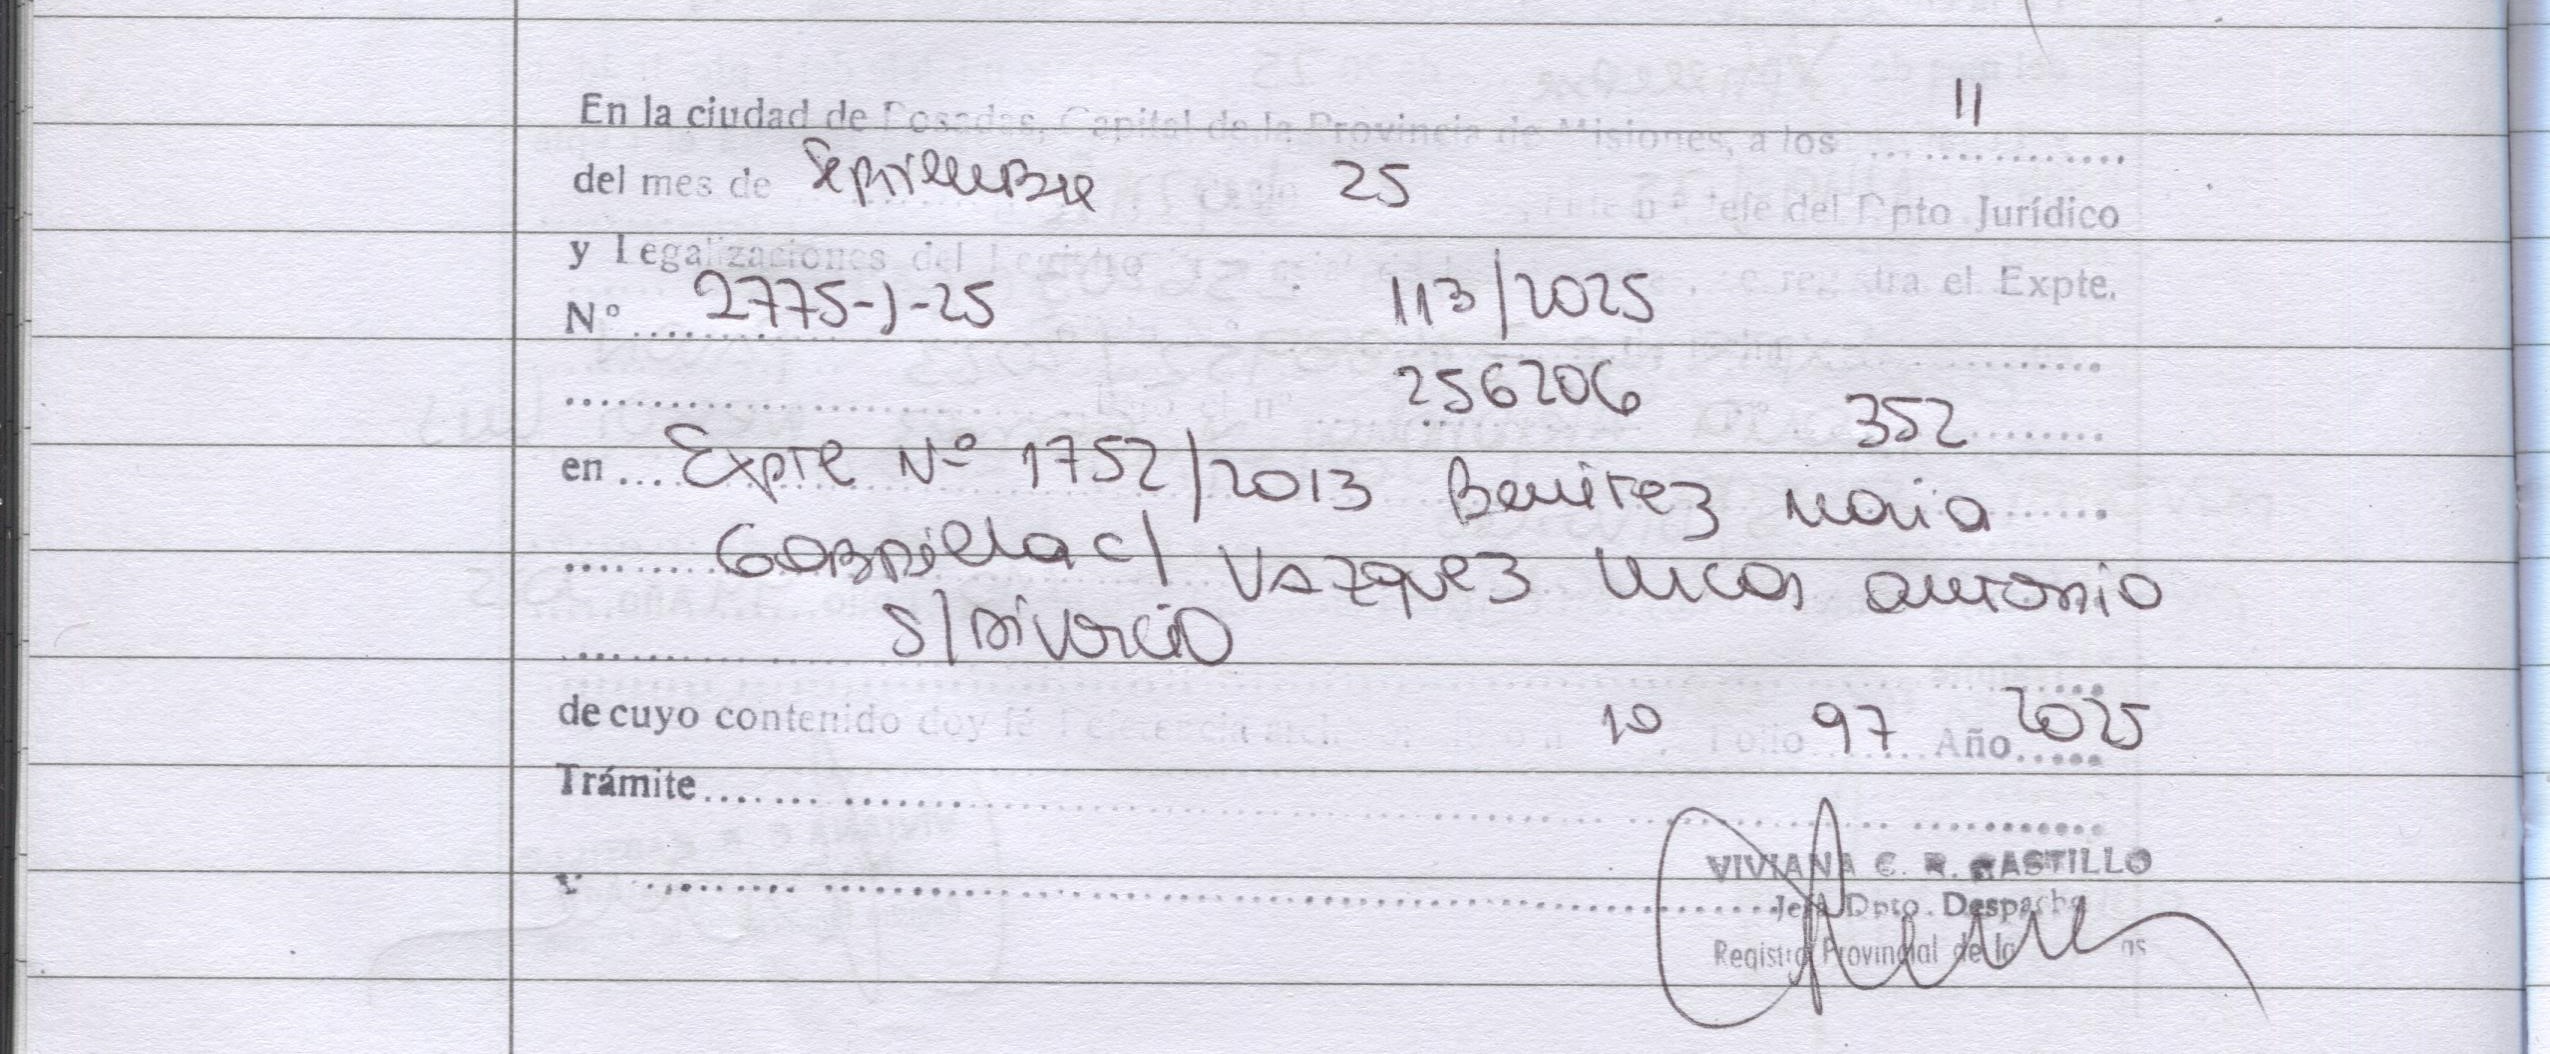 En la ciudad de Posadas, Capital de la Provincia de Misiones, a los 11
del mes de Septiembre 25 Jefe del Dpto Jurídico
y Legalizaciones del se registra el Expte.
Nº 2775-J-25 113/2025
256206 352
en Expte Nº 1752/2013 Benitez Maria
Gabriella c/ Vazquez Lucas Antonio
S/Divorcio
de cuyo contenido doy fé 10 Folio 97 Año 2025
Trámite
y
VIVIANA C. R. CASTILLO
Jefa Dpto. Despacho
Registro Provincial de las